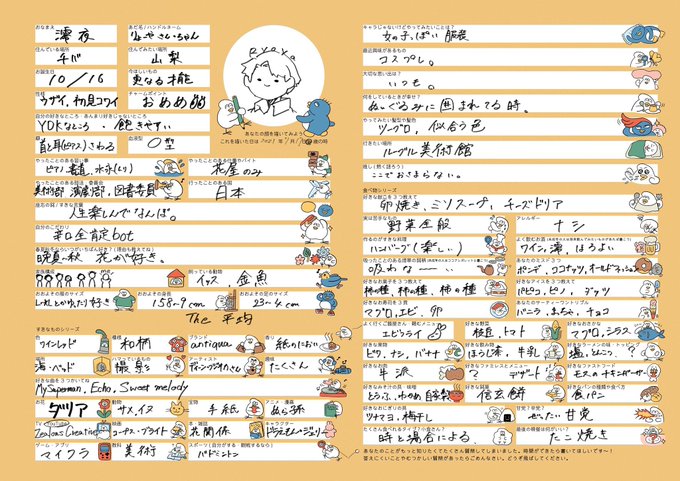 おなまえ
澪夜
あだ名/ハンドルネーム
りょやさん・ちゃん
住んでいる場所
チバ
住んでみたい場所
山梨
お誕生日
10/16
今ほしいもの
更なる才能
性格
ウザイ、初見コワイ
チャームポイント
おめめ
Ryoya
あなたの顔を描いてみよう
自分の好きなところ・あんまり好きじゃないところ
YDKなところ・飽きやすい
癖
首と耳(ピアス)さわる
血液型
O型
やったことのある習い事
ピアノ、書道、水泳(4ヶ月)
やったことのある仕事やバイト
花屋のみ
やったことのある部活、委員会
美術部 演劇部、図書委員
行ったことのある国
日本
座右の銘/すきな言葉
人生楽しんでなんぼ。
自分のこだわり
辛口全肯定bot
晩夏〜秋 花が好き。
家族構成
飼っている動物
イッヌ、金魚
おおよその服のサイズ
しれとかれたり好き
おおよその身長
158.9cm
おおよその足のサイズ
23〜4cm
The 平均
すきなものシリーズ
色
ワインレッド
模様
和柄
ブランド
antiqua
香り
紙のにおい
場所
海・ベッド
ハマっているもの
撮影
アーティスト
機種
たくさん
好きな曲を3つかいてね
My Superman, Echo, Sweet melody
お花
ダリア
動物
サメ、イヌ
宝物
手紙
アニメ・漫画
ぬら孫
TV YouTube
Zealous Creative
映画
コープス・ブライド
本・雑誌
共闘係
キャラクター
ドラえもん・ジェリー
ゲーム・アプリ
マイクラ
教科
美術
スポーツ(自分がする・観戦するなら)
バドミントン
キャラじゃないけどやってみたいことは?
女の子っぽい服装
最近興味があるもの
コスプレ。
大切な思い出は?
いつも。
何をしているときが幸せ?
ぬいぐるみに囲まれてる時。
やってみたい髪型や髪色
ツーブロ、似合う色
行きたい場所
ルーブル美術館
推し(熱く語ろう)
ここでおさまらない。
食べ物シリーズ
好きな献立を3つ教えて
卵焼き、ミソスープ、チーズドリア
実は苦手なもの
野菜全般
アレルギー
ナシ
作るのがすきな料理
ハンバーグ(楽しい)
よく飲むお酒
ワイン、澪、ほろよい
吸わな〜〜い
あなたのミスド3つ
ポンデ、ココナッツ、オールドファッション
好きなお菓子を3つ教えて
柿の種、柿の種、柿の種
好きなアイスを3つ教えて
パピコ、ピノ、ダッツ
好きなお寿司を3貫
マグロ、エビ、卵
あなたのサーティーワントリプル
バニラ、まっちゃ、チョコ
よく行くご飯屋さん・頼むメニュー
エビフライ
好きな野菜
枝豆、トマト
好きなおさかな
マグロ、シラス
好きな果物
ピワ、ナシ、バナナ
好きな飲み物
ほうじ茶、牛乳
好きなラーメンの味・トッピング
塩、とんこつ、?
好きなお肉
牛派
好きなファミレスとメニュー
マ デザート
好きなファーストフード
モス、のチキンバーガー
好きなみそ汁の具、味噌
とうふ、わかめ 自家製
好きな和菓子
信玄餅
好きなパンの種類や食べ方
食パン
好きなおにぎりの具
ツナマヨ、梅干し
甘党?辛党?
ぜったい甘党
たくさん食べれるタイプ?小食さん?
時と場合による、
最後の晩餐は何がいい?
たこ焼き
あなたのことがもっと知りたくてたくさん質問してしまいました。時間ができたら書いてほしいです〜!
答えにくいことやむつかしい質問があったらごめんなさい。どうぞ飛ばしてください。